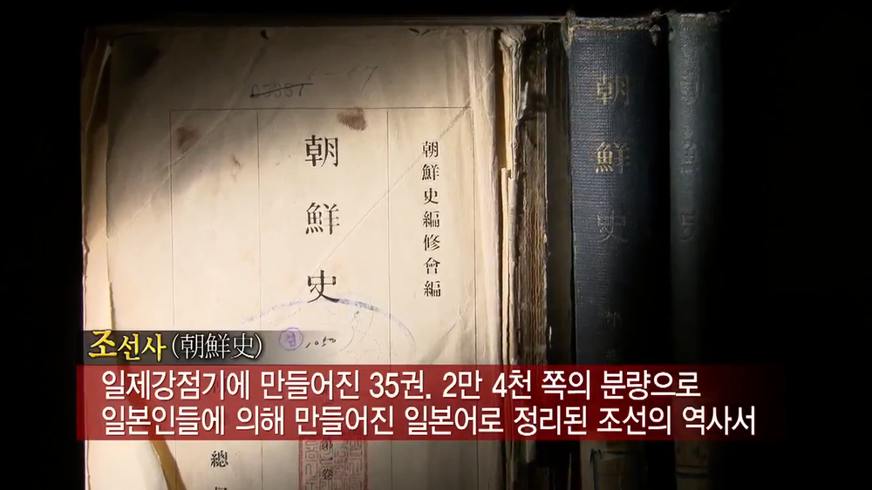 朝鮮史編修會編
朝鮮史
朝鮮史
朝鮮史
조선사(朝鮮史)
일제강점기에 만들어진 35권. 2만 4천 쪽의 분량으로
일본인들에 의해 만들어진 일본어로 정리된 조선의 역사서
總
1050